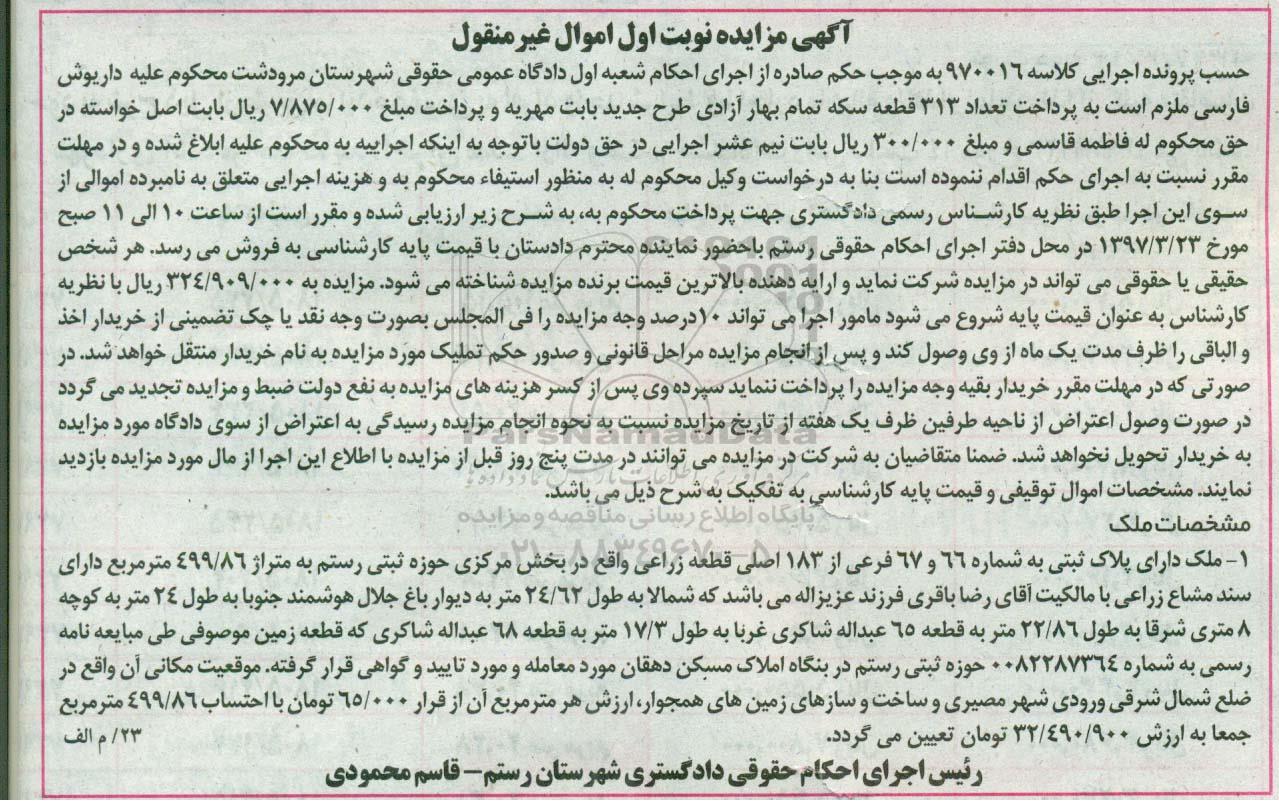 آگهی مزایده نوبت اول اموال غیرمنقول
حسب پرونده اجرایی کلاسه ۹۷۰۰۱۶ به موجب حکم صادره از اجرای احکام شعبه اول دادگاه عمومی حقوقی شهرستان مرودشت محکوم علیه داریوش
فارسی ملزم است به پرداخت تعداد ۳۱۳ قطعه سکه تمام بهار آزادی طرح جدید بابت مهریه و پرداخت مبلغ ۷/۸۷۵/۰۰۰ ریال بابت اصل خواسته در
حق محکوم له فاطمه قاسمی و مبلغ ۳۰۰/۰۰۰ ریال بابت نیم عشر اجرایی در حق دولت باتوجه به اینکه اجراییه به محکوم علیه ابلاغ شده و در مهلت
مقرر نسبت به اجرای حکم اقدام ننموده است بنا به درخواست وکیل محکوم له به منظور استیفاء محکوم به و هزینه اجرایی متعلق به نامبرده اموالی از
سوی این اجرا طبق نظریه کارشناس رسمی دادگستری جهت پرداخت محکوم به، به شرح زیر ارزیابی شده و مقرر است از ساعت ۱۰ الی ۱۱ صبح
مورخ ۱۳۹۷/۳/۲۳ در محل دفتر اجرای احکام حقوقی رستم باحضور نماینده محترم دادستان با قیمت پایه کارشناسی به فروش می رسد. هر شخص
حقیقی یا حقوقی می تواند در مزایده شرکت نماید و ارایه دهنده بالاترین قیمت برنده مزایده شناخته می شود. مزایده به ۳۲۴/۹۰۹/۰۰۰ ریال با نظریه
کارشناس به عنوان قیمت پایه شروع می شود مامور اجرا می تواند ۱۰درصد وجه مزایده را فی المجلس بصورت وجه نقد یا چک تضمینی از خریدار اخذ
و الباقی را ظرف مدت یک ماه از وی وصول کند و پس از انجام مزایده مراحل قانونی و صدور حکم تملیک مورد مزایده به نام خریدار منتقل خواهد شد. در
صورتی که در مهلت مقرر خریدار بقیه وجه مزایده را پرداخت ننماید سپرده وی پس از کسر هزینه های مزایده به نفع دولت ضبط و مزایده تجدید می گردد
در صورت وصول اعتراض از ناحیه طرفین ظرف یک هفته از تاریخ مزایده نسبت به نحوه انجام مزایده رسیدگی به اعتراض از سوی دادگاه مورد مزایده
به خریدار تحویل نخواهد شد. ضمنا متقاضیان به شرکت در مزایده می توانند در مدت پنج روز قبل از مزایده با اطلاع این اجرا از مال مورد مزایده بازدید
نمایند. مشخصات اموال توقیفی و قیمت پایه کارشناسی به تفکیک به شرح ذیل می باشد.
مشخصات ملک
۱- ملک دارای پلاک ثبتی به شماره ۶۶ و ۶۷ فرعی از ۱۸۳ اصلی قطعه زراعی واقع در بخش مرکزی حوزه ثبتی رستم به متراژ ۴۹۹/۸۶ مترمربع دارای
سند مشاع زراعی با مالکیت آقای رضا باقری فرزند عزیزاله می باشد که شمالا به طول ۲۴/۶۲ متر به دیوار باغ جلال هوشمند جنوبا به طول ۲۴ متر به کوچه
۸ متری شرقا به طول ۲۲/۸۶ متر به قطعه ۶۵ عبداله شاکری غربا به طول ۱۷/۳ متر به قطعه ۶۸ عبداله شاکری که قطعه زمین موصوفی طی مبایعه نامه
رسمی به شماره ۰۰۸۲۲۸۷۳۶۴ حوزه ثبتی رستم در بنگاه املاک مسکن دهقان مورد معامله و مورد تایید و گواهی قرار گرفته. موقعیت مکانی آن واقع در
ضلع شمال شرقی ورودی شهر مصیری و ساخت و سازهای زمین های همجوار، ارزش هر مترمربع آن از قرار ۶۵/۰۰۰ تومان با احتساب ۴۹۹/۸۶ مترمربع
جمعا به ارزش ۳۲/۴۹۰/۹۰۰ تومان تعیین می گردد. ۲۳/ م الف
رئیس اجرای احکام حقوقی دادگستری شهرستان رستم- قاسم محمودی
ParsNamadData
پایگاه اطلاع رسانی مناقصه و مزایده
۰۲۱-۸۸۳۴۹۶۷۰-۵